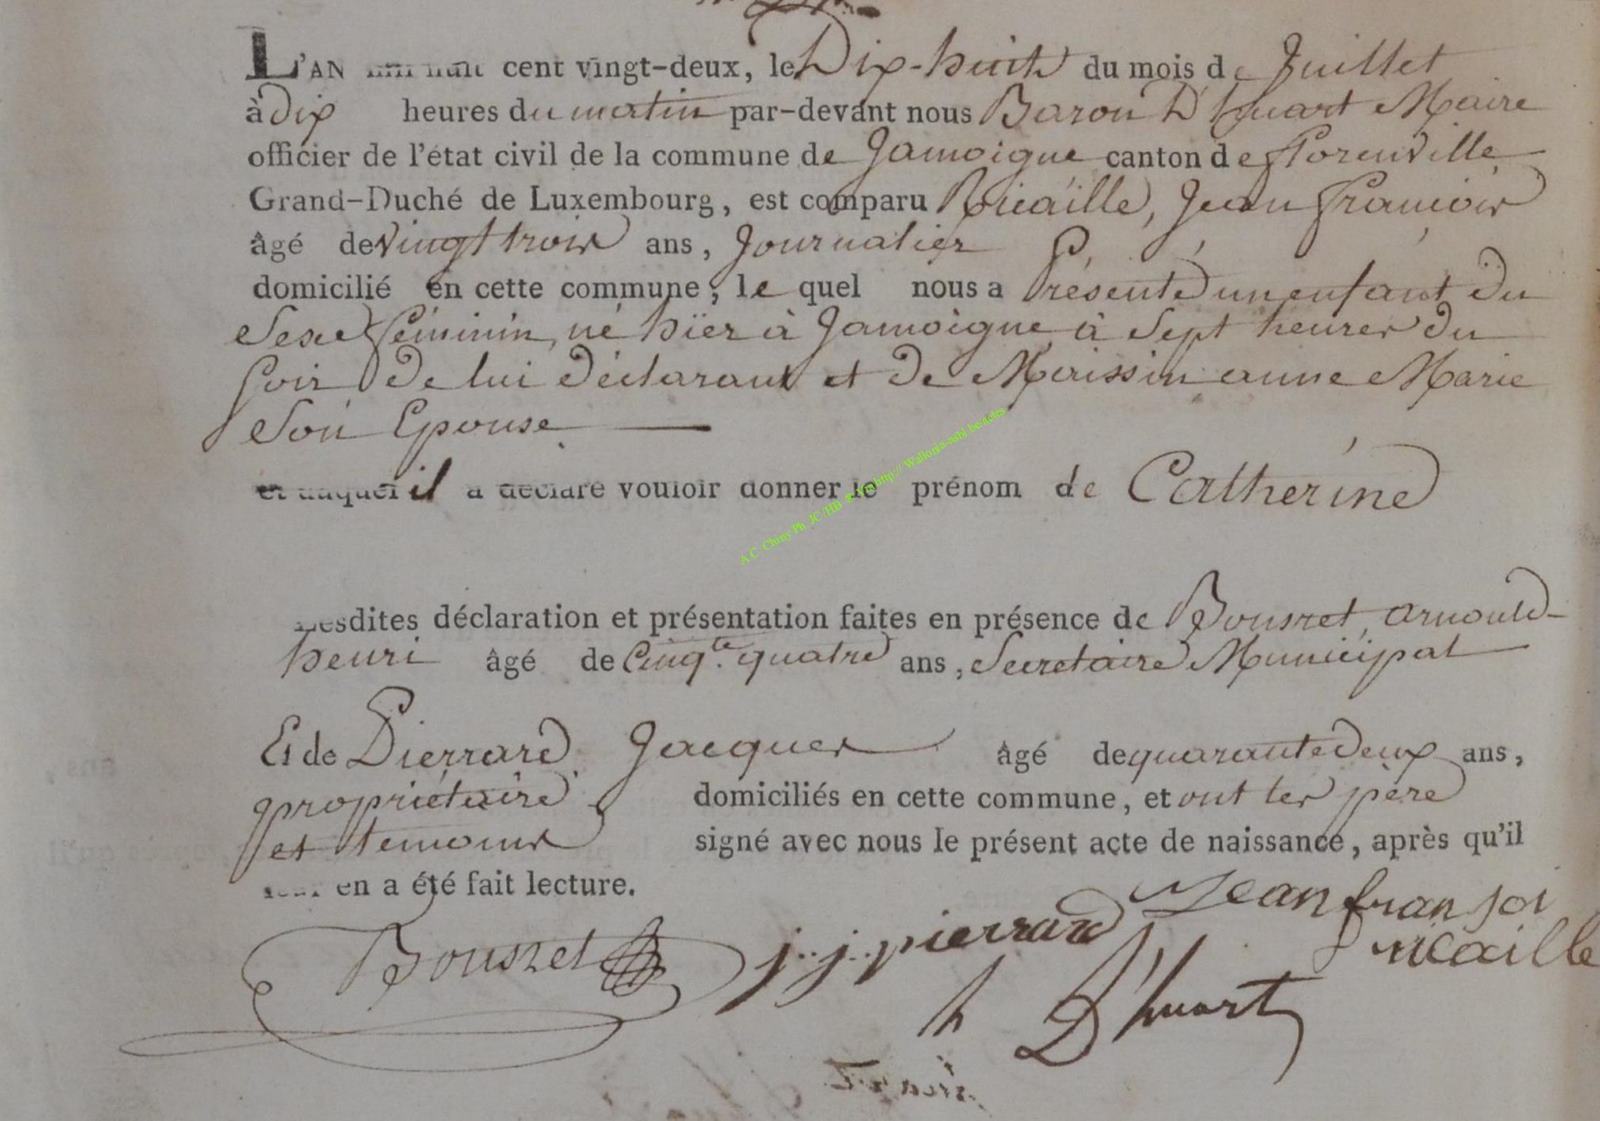 L'AN mil huit cent vingt-deux, le Dix-huit du mois de Juillet
à dix heures du matin par-devant nous Baron D'huart Maire
officier de l'état civil de la commune de Jamoigne canton de florenville
Grand-Duché de Luxembourg, est comparu Ricaille, Jean françois
âgé de vingt trois ans, Journalier
domicilié en cette commune, le quel nous a Présenté un enfant du
Sexe féminin, né hier à Jamoigne à Sept heures du
Soir de lui déclarant et de Maissin anne Marie
Son Epouse
et auquel il a déclaré vouloir donner le prénom de Catherine
A.C. Chiny Ph. JC/HB
Lesdites déclaration et présentation faites en présence de Bousret, arnould-
henri âgé de Cinqte. quatre ans, Secretaire Municipal
Et de Pierrard Jacques âgé de quarante deux ans,
propriétaire domiciliés en cette commune, et ont les père
et temoins signé avec nous le présent acte de naissance, après qu'il
leur en a été fait lecture.
Bousret j..j..pierrard Jean fransoi
ricaille
h D'huart